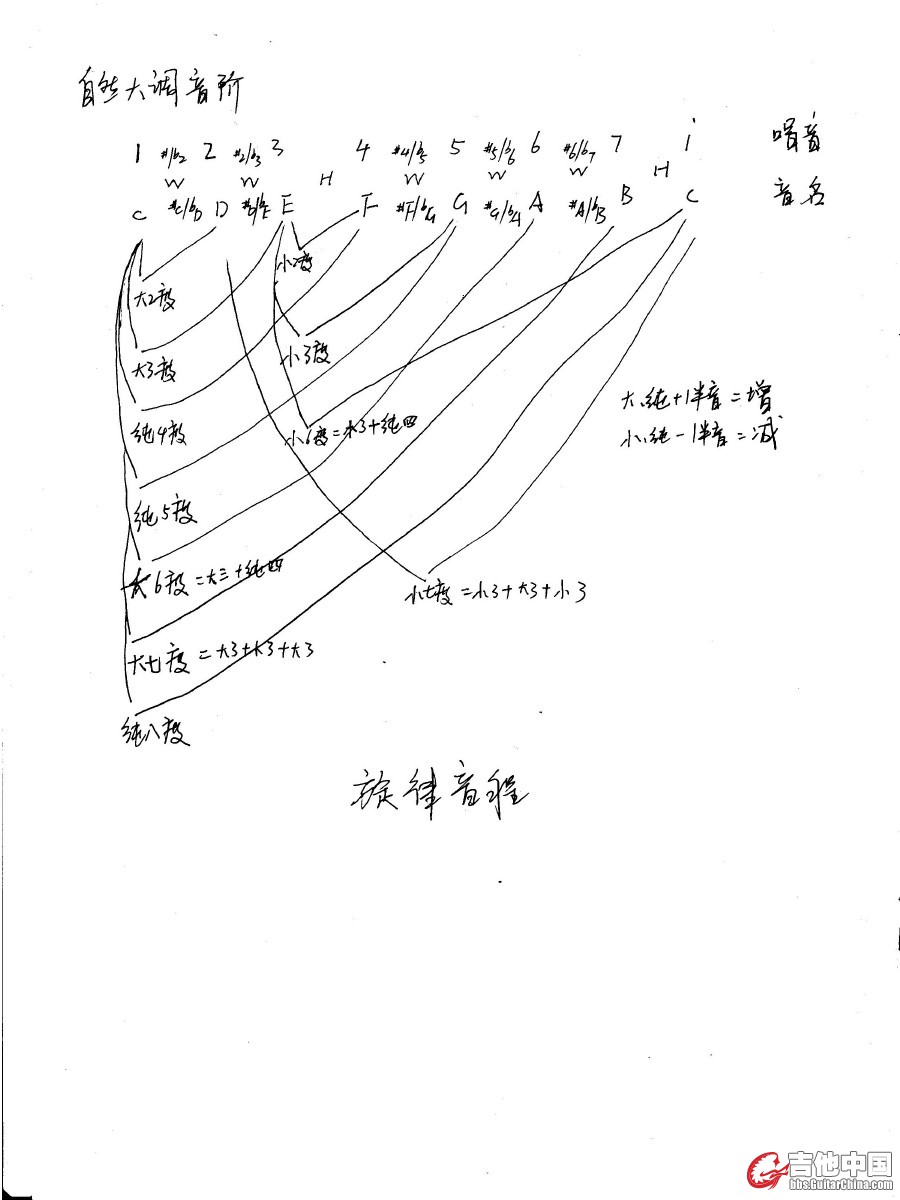 自然大调音阶
1 #1/b2 2 #2/b3 3 4 #4/b5 5 #5/b6 6 #6/b7 7 i 唱音
W W H W W W H
C #C/bD D #D/bE E F #F/bG G #G/bA A #A/bB B C 音名
小2度
大2度
小3度
大3度
大、纯+1半音=增
纯4度
小6度=小3+纯四
小、纯-1半音=减
纯5度
大6度=大三+纯四
小七度=小3+大3+小3
大七度=大3+小3+大3
纯八度
旋律音程
吉他中国
bbs.GuitarChina.com